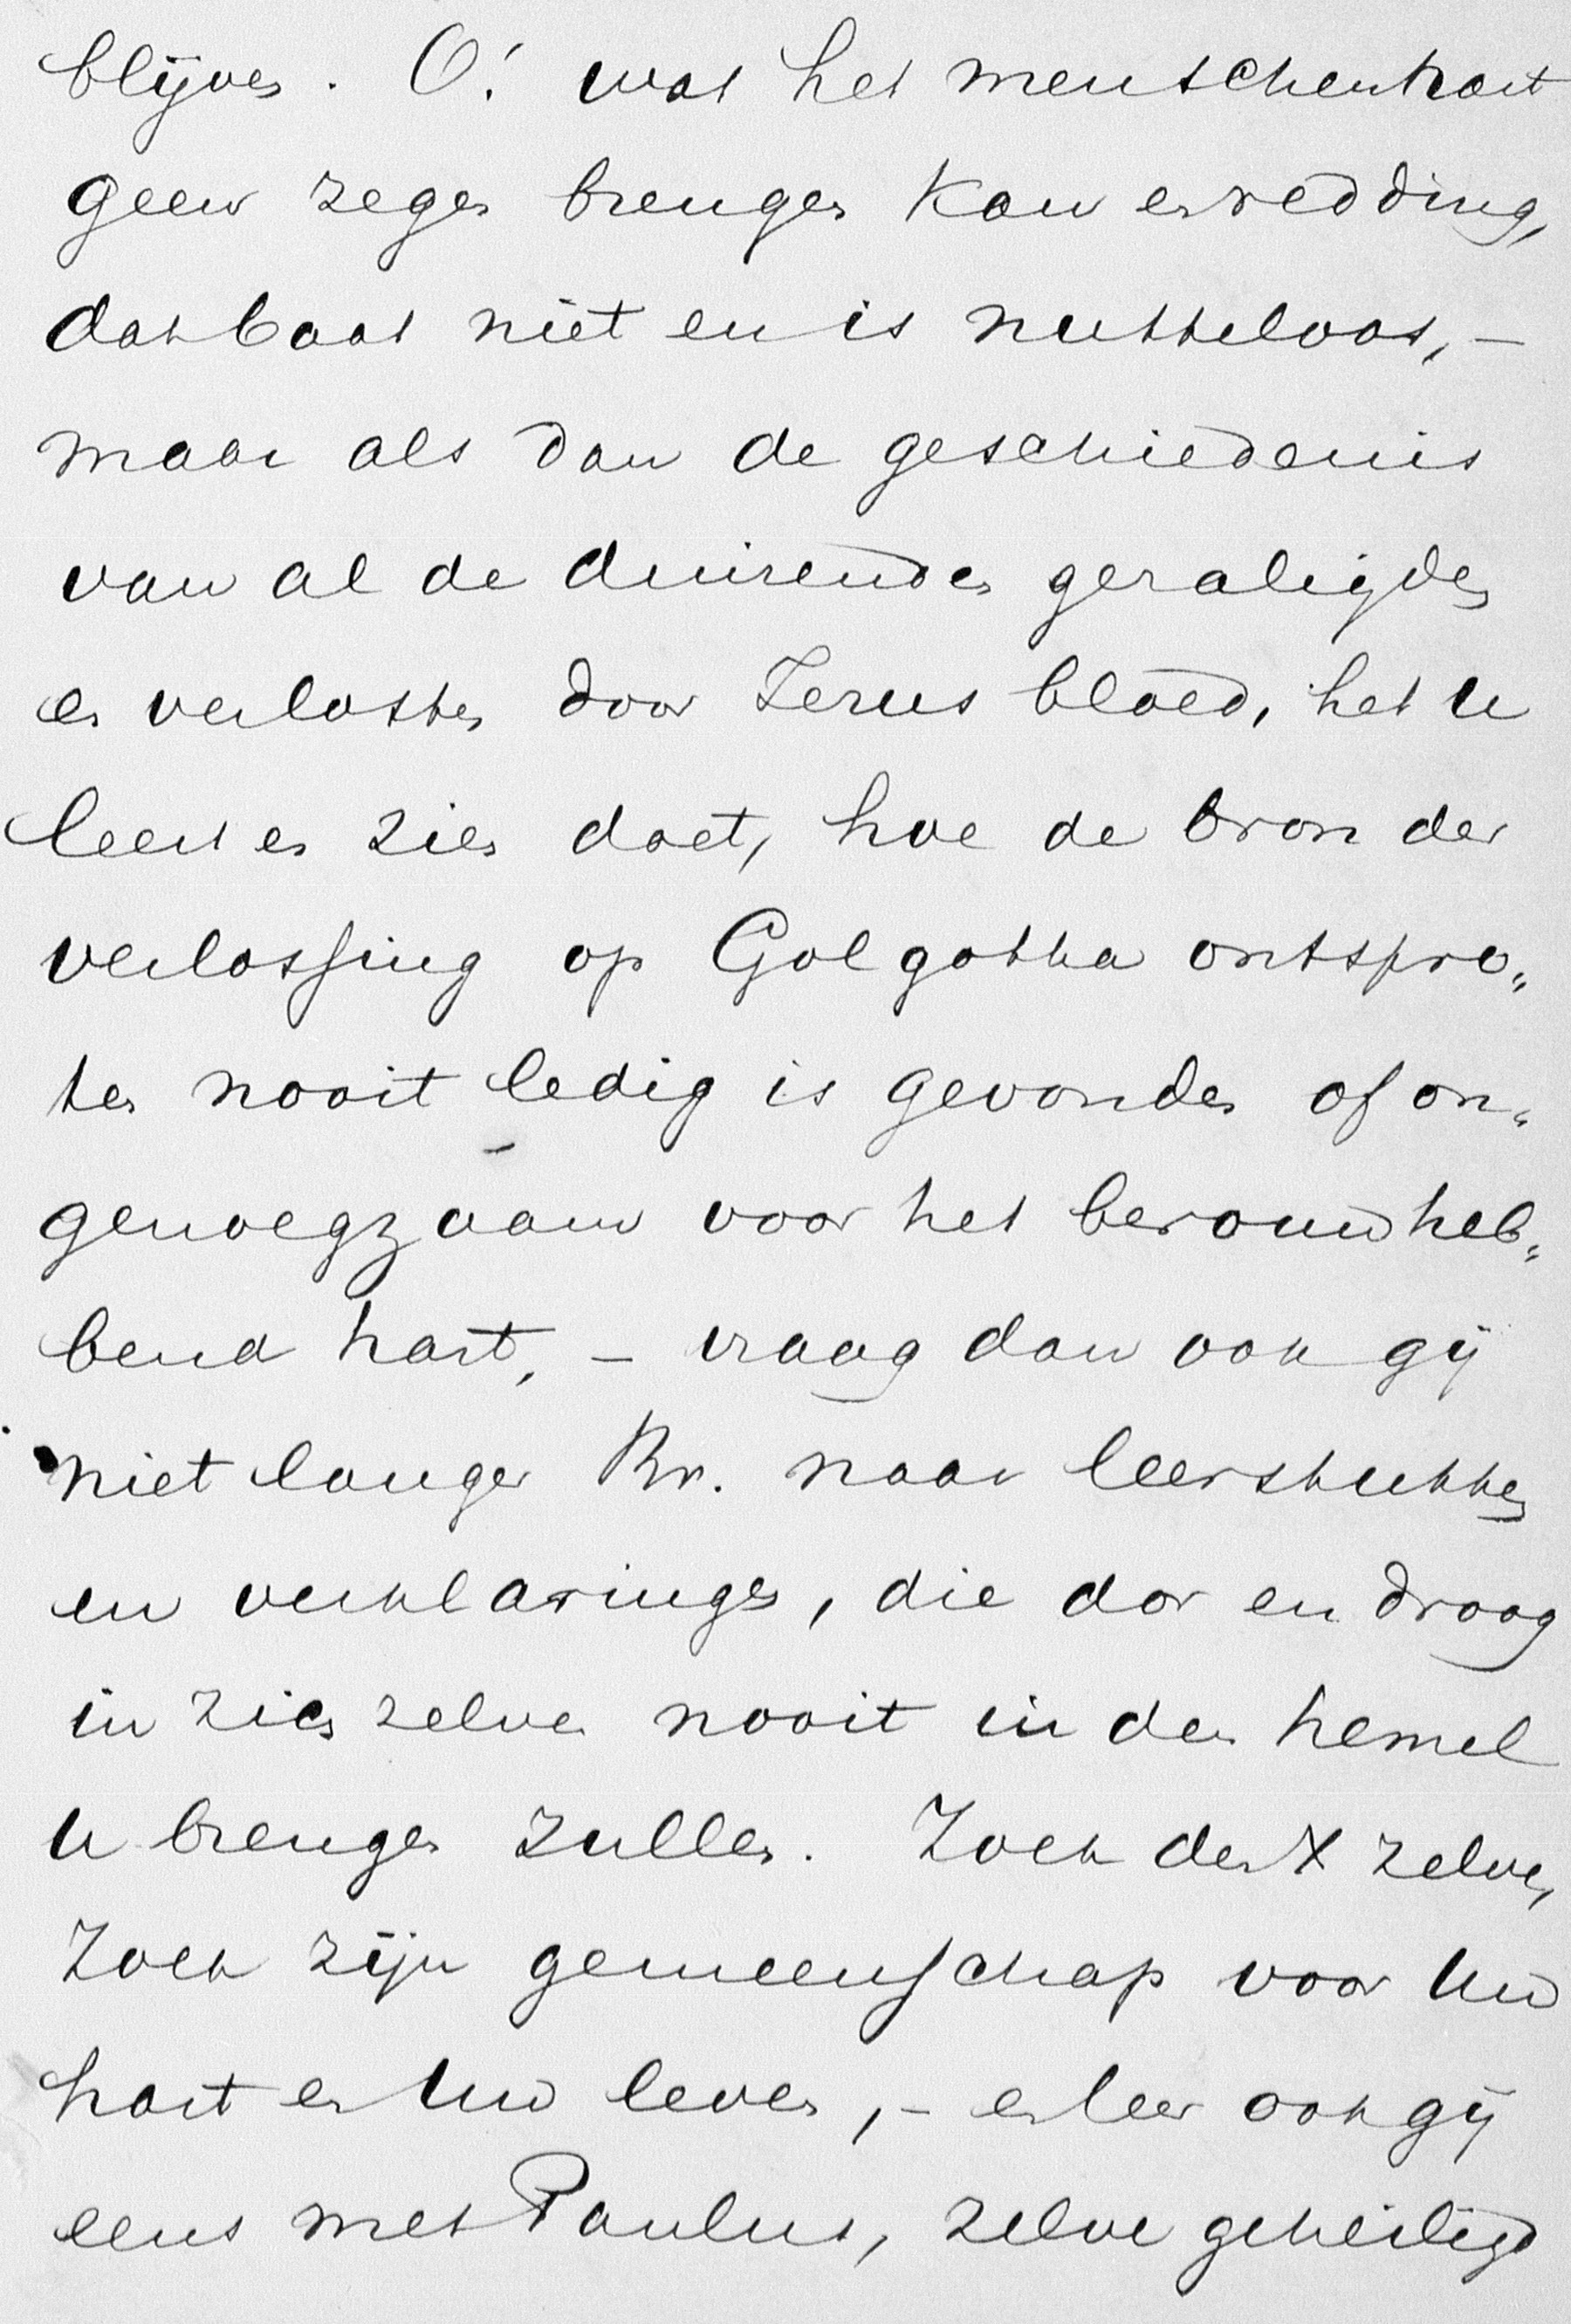 blijven. O! wat het menschenhart
geen zegen brengen kan en redding,
dat baat niet en is nutteloos, -
maar als dan de geschiedenis
van al de duizenden gezaligden
en verlosten door Jezus bloed, het u
leert en zien doet, hoe de bron der
verlossing op Golgotha ontspro„
ten nooit ledig is gevonden of on„
genoegzaam voor het berouwheb„
bend hart, - vraag dan ook gij
niet langer Br. naar leerstukken
en verklaringen, die dor en droog
in zich zelven nooit in den hemel
u brengen zullen. Zoek den X zelven,
Zoek zijn gemeenschap voor Uw
hart en Uw leven, - en leer ook gij
eens met Paulus, zelve geheiligd